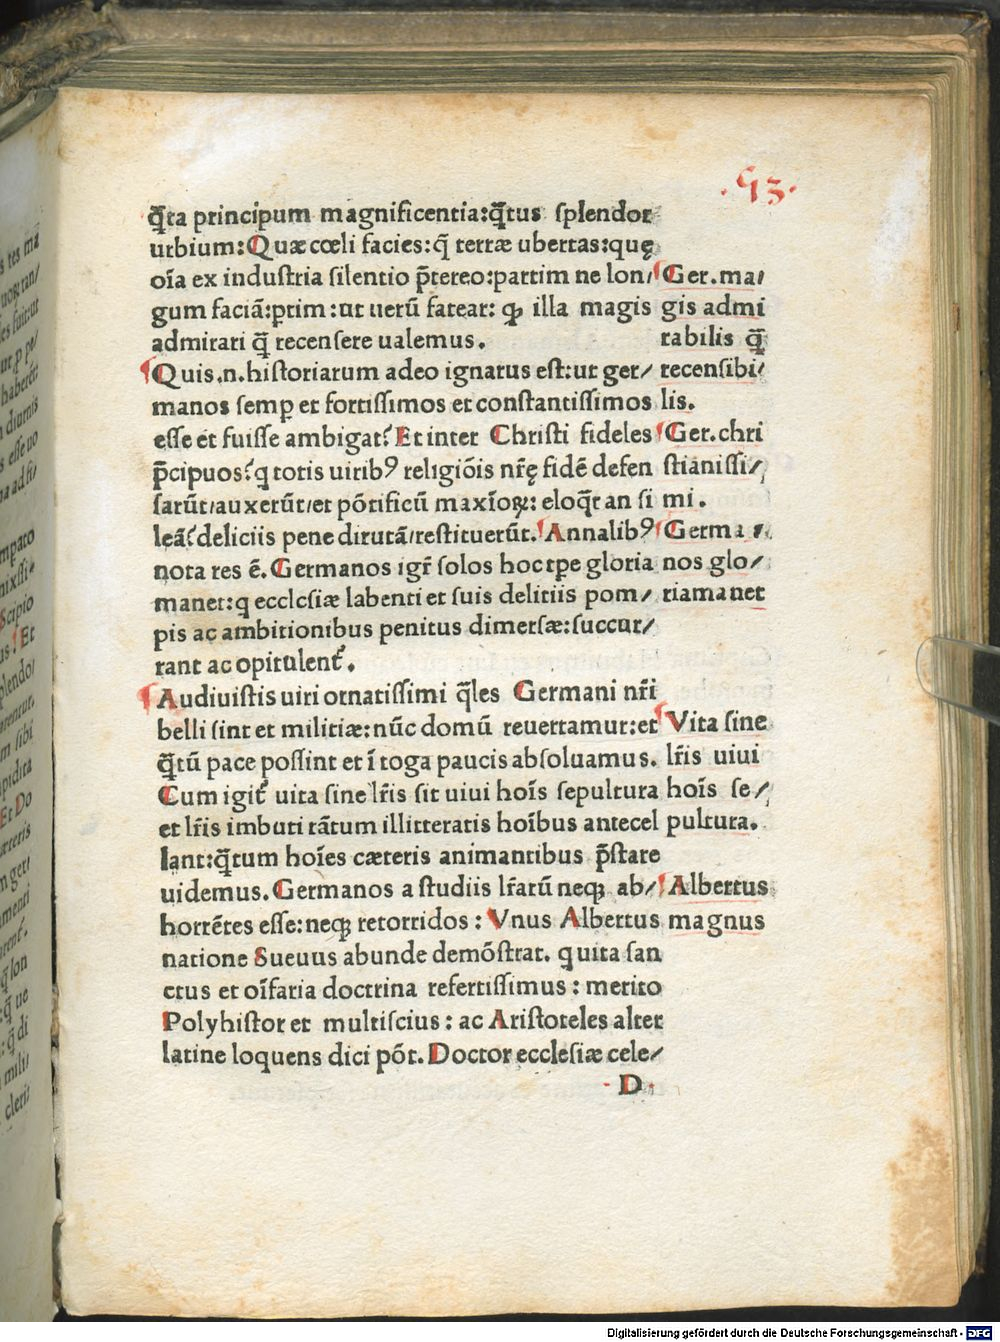 .93.
q̄ta principum magnificentia:q̄tus splendor
urbium:Quæ cœli facies:q̄ terræ ubertas:quę
oīa ex industria silentio p̄tereo:partim ne lon/
gum faciā:ptim:ut uerū fatear: ꝙ illa magis
admirari q̄ recensere ualemus.
Quis.n.historiarum adeo ignarus est:ut ger/
manos semꝑ et fortissimos et constantissimos
esse et fuisse ambigat? Et inter Christi fideles
p̄cipuos?q totis uirib⁹ religiōis nr̄ę fidē defen
sarūt/auxerūt/et pōtificū maxīoꝝ: eloq̄r an si
leā?deliciis pene dirutā/restituerūt. Annalib⁹
nota res ē. Germanos igr̄ solos hoc tꝑe gloria
manet:q ecclesiæ labenti et suis delitiis pom/
pis ac ambitionibus penitus dimersæ:succur/
rant ac opitulent᷑.
Audiuistis uiri ornatissimi q̄les Germani nr̄i
belli sint et militiæ:nūc domū reuertamur:et
q̄tū pace possint et ī toga paucis absoluamus.
Cum igit᷑ uita sine lr̄is sit uiui hoīs sepultura
et lr̄is imbuti tātum illitteratis hoībus antecel
lant:q̄tum hoīes cæteris animantibus p̄stare
uidemus. Germanos a studiis lr̄arū neqꝫ ab/
horrētes esse:neqꝫ retorridos : Vnus Albertus
natione Sueuus abunde demōstrat. q uita san
ctus et oīfaria doctrina refertissimus : merito
Polyhistor et multiscius : ac Aristoteles alter
latine loquens dici pōt. Doctor ecclesiæ cele/
D
Ger.ma/
gis admi
rabilis q̄
recensibi/
lis.
Ger.chri
stianissi/
mi.
Germa
nos glo/
ria manet
Vita sine
lr̄is uiui
hoīs se/
pultura.
Albertus
magnus
Digitalisierung gefördert durch die Deutsche Forschungsgemeinschaft - DFG